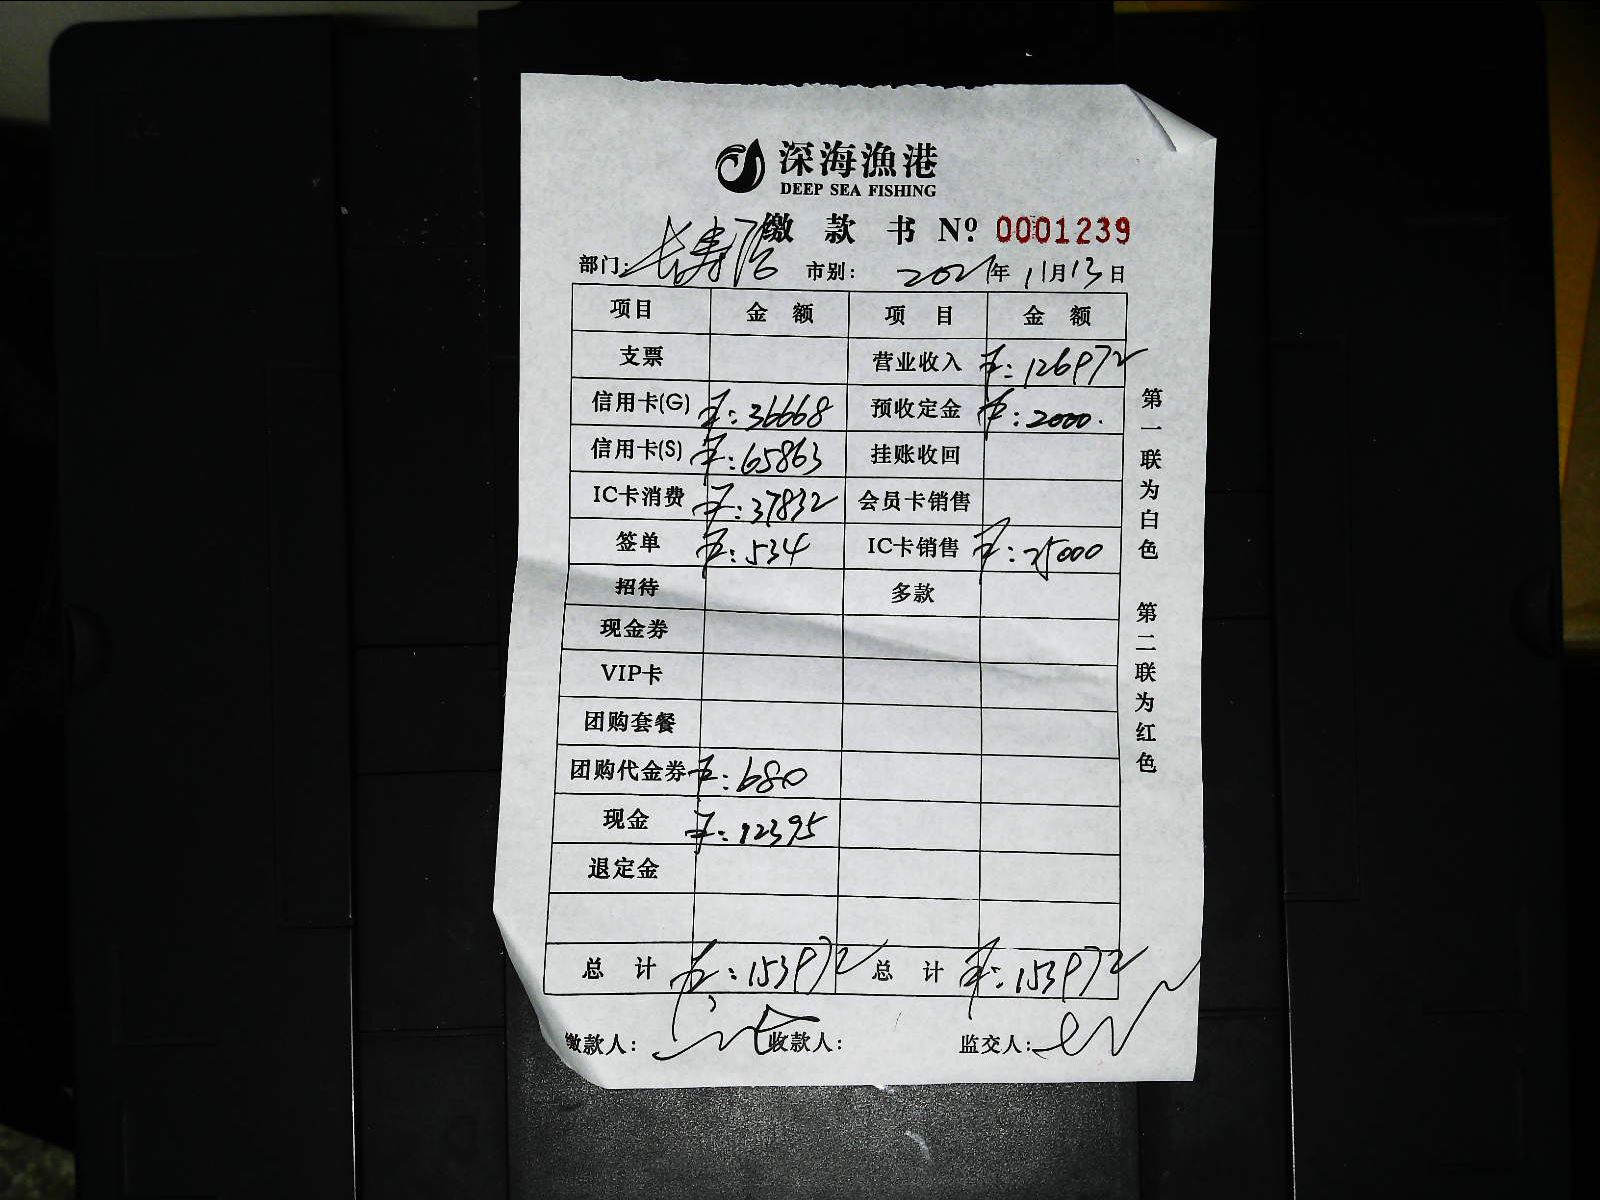 深海漁港
DEEP SEA FISHING
缴款书 Nº 0001239
部门: 长寿店 市别: 2021年11月13日
项目 金额 项目 金额
支票 营业收入 ¥:126972
信用卡(G) ¥:36668 预收定金 ¥:2000.
信用卡(S) ¥:65863 挂账收回
IC卡消费 ¥:37832 会员卡销售
签单 ¥:534 IC卡销售 ¥:25000
招待 多款
现金券
VIP卡
团购套餐
团购代金券 ¥:680
现金 ¥:12395
退定金
总计 ¥:153972 总计 ¥:153972
缴款人: 收款人: 监交人:
第一联为白色 第二联为红色